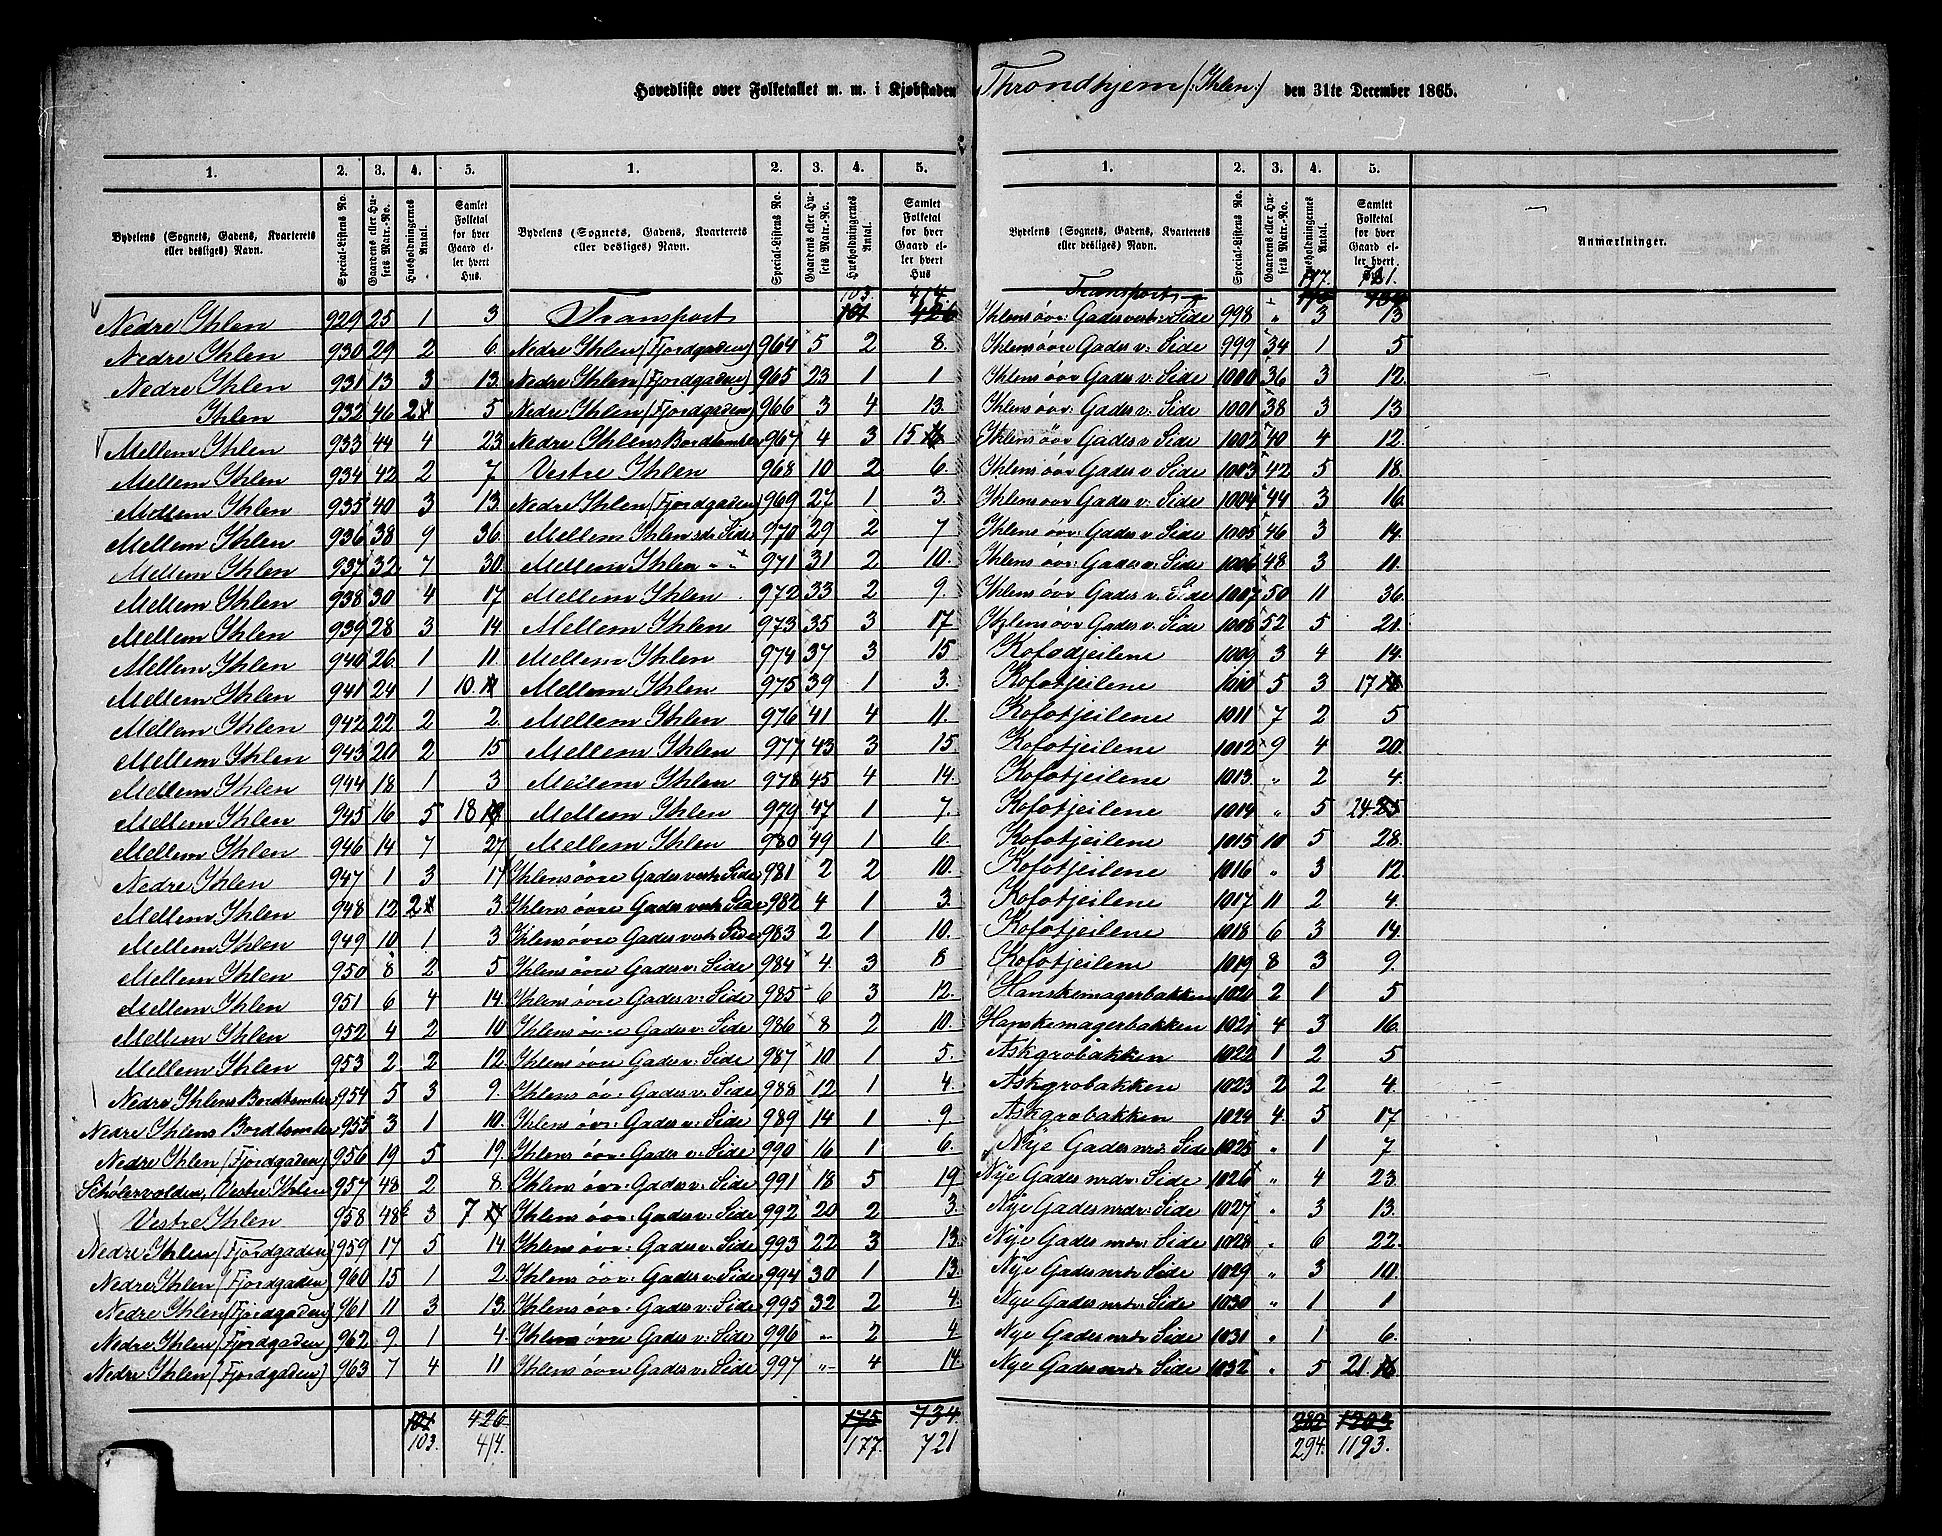 Hovedliste over Folketallet m. m. i Kjøbstaden Throndhjem (:Ihlen:) den 31te December 1865.
1. 2. 3. 4. 5. 1. 2. 3. 4. 5.
Bydelens (Sognets, Gadens, Kvarterets eller desliges) Navn. Special-Listens No. Gaardens eller Husets Matr.-No. Husholdningernes Antal. Samlet Folketal for hver Gaard eller hvert Hus.
Bydelens (Sognets, Gadens, Kvarterets eller desliges) Navn. Special-Listens No. Gaardens eller Husets Matr.-No. Husholdningernes Antal. Samlet Folketal for hver Gaard eller hvert Hus
Nedre Ihlen 929 25 1 3
Nedre Ihlen 930 29 2 6.
Nedre Ihlen 931 13 3 13.
Ihlen 932 46 2 5
Mellem Ihlen 933 44 4 23
Mellem Ihlen 934 42 2 7
Mellem Ihlen 935 40 3 13.
Mellem Ihlen 936 38 9 36.
Mellem Ihlen 937 32 7 30.
Mellem Ihlen 938 30 4 17
Mellem Ihlen 939 28 3 14.
Mellem Ihlen 940 26 1 11.
Mellem Ihlen 941 24 1 10.
Mellem Ihlen 942 22 2 2.
Mellem Ihlen 943 20 2 15
Mellem Ihlen 944 18 1 3
Mellem Ihlen 945 16 5 18
Mellem Ihlen 946 14 7 27
Nedre Ihlen 947 1 3 17
Mellem Ihlen 948 12 2 3
Mellem Ihlen 949 10 1 3
Mellem Ihlen 950 8 2 5
Mellem Ihlen 951 6 4 14.
Mellem Ihlen 952 4 2 10
Mellem Ihlen 953 2 2 12.
Nedre Ihlens Bordtomter 954 5 3 9.
Nedre Ihlens Bordtomter 955 3 1 10.
Nedre Ihlen (Fjordgaden) 956 19 5 19.
Schölervolden, Vestre Ihlen 957 48 2 8
Vestre Ihlen 958 48 3 7
Nedre Ihlen (Fjordgaden) 959 17 5 14.
Nedre Ihlen (Fjordgaden) 960 15 1 2.
Nedre Ihlen (Fjordgaden) 961 11 3 13.
Nedre Ihlen (Fjordgaden) 962 9. 1 4.
Nedre Ihlen (Fjordgaden) 963 7 4 11
101 426
103. 414.
103. 414.
Transport 101 426
Nedre Ihlen (Fjordgaden) 964 5 2 8.
Nedre Ihlen (Fjordgaden) 965 23 1 1
Nedre Ihlen (Fjordgaden) 966 3 4 13.
Nedre Ihlens Bordtomter 967 4 3 15
Vestre Ihlen 968 10 2 6.
Nedre Ihlen (Fjordgaden) 969 27 1 3.
Mellem Ihlen sdr Side 970 29 2 7
Mellem Ihlen " " 971 31 2 10.
Mellem Ihlen 972 33 2 9.
Mellem Ihlen 973 35 3 17
Mellem Ihlen 974 37 3 15
Mellem Ihlen 975 39 1 3.
Mellem Ihlen 976 41 4 11.
Mellem Ihlen 977 43 3 15.
Mellem Ihlen 978 45 4 14.
Mellem Ihlen 979 47 1 7.
Mellem Ihlen 980 49 1 6.
Ihlens övre Gades vestr Side 981 2 2 10.
Ihlens övre Gades vestr Side 982 4 1 3.
Ihlens övre Gades vestr Side 983 2 1 10.
Ihlens övre Gades v: Side 984 4 3 8
Ihlens övre Gades v: Side 985 6 3 12.
Ihlens övre Gades v: Side 986 8 2 10.
Ihlens övre Gades v: Side 987 10 1 5.
Ihlens öv: Gades v: Side 988 12 1 4.
Ihlens övr: Gades v: Side 989 14 1 9
Ihlens övr: Gades v: Side 990 16 1 6.
Ihlens övr: Gades v: Side 991 18 5 19
Ihlens övr: Gades v: Side 992 20 2 3.
Ihlens övr: Gades v: Side 993 22 3 13.
Ihlens övr: Gades v: Side 994 30 1 13.
Ihlens övr: Gades v: Side 995 32 2 4.
Ihlens övre Gades v: Side 996 " 2 4
Ihlens övre Gades v: Side 997 " 4 14.
175 734.
177. 721
1. 2. 3. 4. 5.
Bydelens (Sognets, Gadens, Kvarterets eller desliges) Navn. Special-Listens No. Gaardens eller Husets Matr.-No. Husholdningernes Antal. Samlet Folketal for hver Gaard eller hvert Hus. Anmærkninger.
Transport 177. 721.
Ihlens övr: Gades vestr: Side 998 " 3 13
Ihlens övre Gades v: Side 999 34 1 5
Ihlens övr Gades v: Side 1000 36 3 12.
Ihlens övr: Gades v: Side 1001 38 3 13
Ihlens övr Gades v: Side 1002 40 4 12.
Ihlens övr Gades v: Side 1003 42 5 18.
Ihlens övr Gades v: Side 1004 44 3 16.
Ihlens övr: Gades v: Side 1005 46 3 14.
Ihlens övr: Gades v: Side 1006 48 3 11.
Ihlens övr Gades v: Side 1007 50 11 36.
Ihlens övr Gades v: Side 1008 52 5 21.
Kofodjeilene 1009 3 4 14.
Kofotjeilene 1010 5 3 17
Kofotjeilene 1011 7 2 5
Kofotjeilene 1012 9 4 20.
Kofotjeilene 1013. " 2 4.
Kofotjeilene 1014 " 5 24.
Kofotjeilene 1015 10 5 28.
Kofotjeilene 1016 " 3 12.
Kofotjeilene 1017 11 2 4
Kofotjeilene 1018 6 3 14.
Kofotjeilene 1019 8 3 9.
Hanskemagerbakken 1020 2 1 5
Hanskemagerbakken 1021 4 3 16.
Askgrobakken 1022 1 2 5
Askgrobakken 1023 2 2 4
Askgrobakken 1024 4 5 17
Nye Gades nrdr Side 1025 " 1 7
Nye Gades nrdr: Side 1026 " 4 23.
Nye Gades nrdr: Side 1027 " 3 13.
Nye Gades nrdr: Side 1028 " 6 22.
Nye Gades nrdr Side 1029 " 3 10.
Nye Gades nrdr Side 1030 " 1 1
Nye Gades nrdr Side 1031 " 1 6.
Nye Gades nrdr Side 1032 " 5 21.
282 1203
294. 1193.